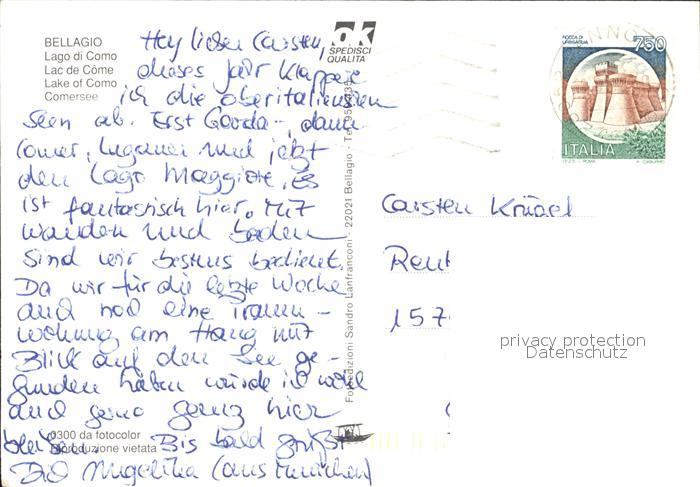 BELLAGIO
Lago di Como
Lac de Côme
Lake of Como
Comersee
Hey lieber Carsten,
dieses Jahr klappere
ich die oberitalienischen
Seen ab. Erst Garda-, dann
Comer, Luganer und jetzt
den Lago Maggiore. Es
ist fantastisch hier. Mit
wandern und baden
sind wir bestens bedient.
Da wir für die letzte Woche
auch noch eine Traum-
wohnung am Hang mit
Blick auf den See ge-
funden haben würde ich wohl
auch gerne ganz hier
bleiben. Bis bald grüßt
Dich Angelika (aus München)
0300 da fotocolor
Riproduzione vietata
ok
SPEDISCI
QUALITÀ
Fotoedizioni Sandro Lanfranconi - 22021 Bellagio - Tel.
ROCCA DI
URBISAGLIA
750
ITALIA
Carsten Krügel
Reut
157
privacy protection
Datenschutz